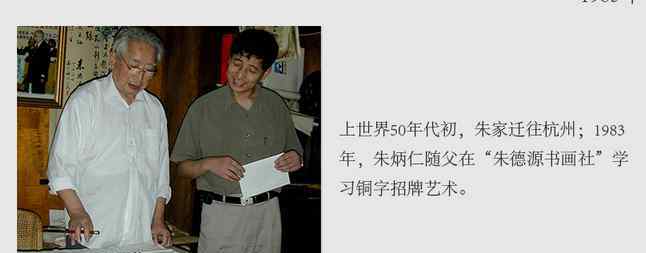 上世界50年代初，朱家迁往杭州；1983
年，朱炳仁随父在“朱德源书画社”学
习铜字招牌艺术。